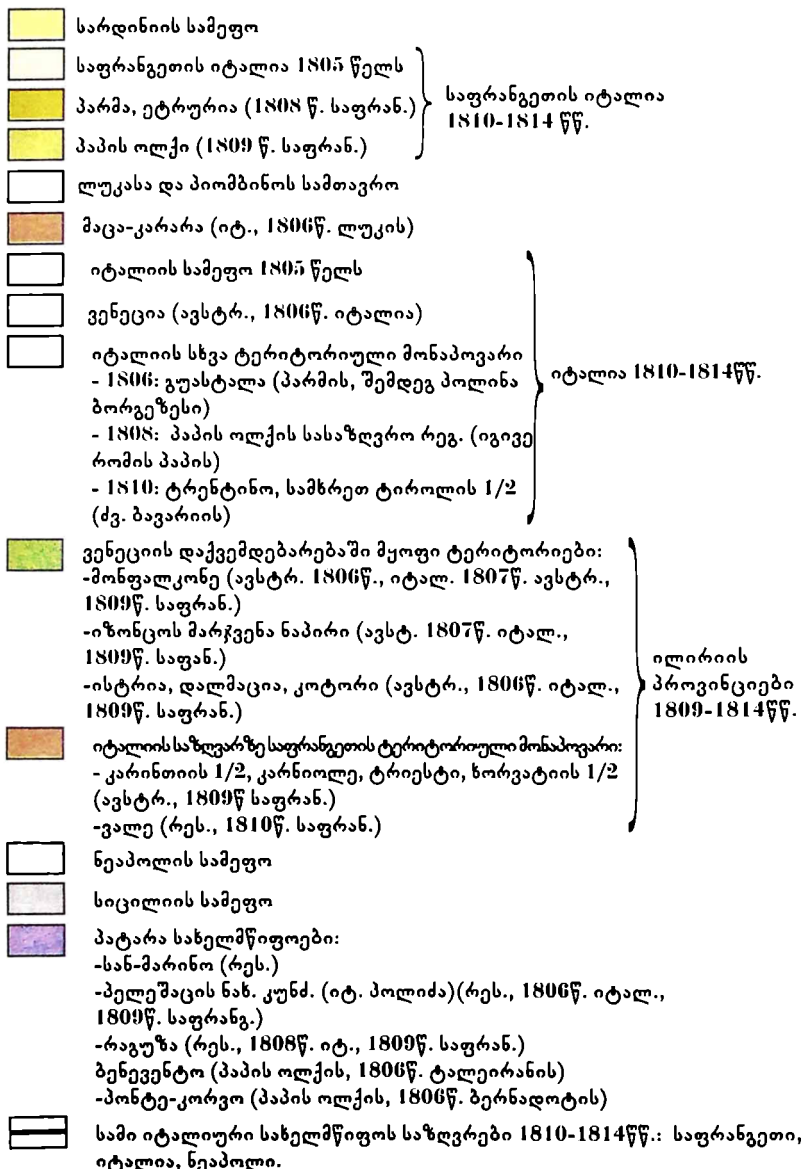 სარდინიის სამეფო
საფრანგეთის იტალია 1805 წელს
პარმა, ეტრურია (1808 წ. საფრან.)
პაპის ოლქი (1809 წ. საფრან.)
საფრანგეთის იტალია
1810-1814 წწ.
ლუკასა და პიომბინოს სამთავრო
მაცა-კარარა (იტ., 1806წ. ლუკის)
იტალიის სამეფო 1805 წელს
ვენეცია (ავსტრ., 1806წ. იტალია)
იტალიის სხვა ტერიტორიული მონაპოვარი
- 1806: გუასტალა (პარმის, შემდეგ პოლინა
ბორგეზესი)
- 1808: პაპის ოლქის სასაზღვრო რეგ. (იგივე
რომის პაპის)
- 1810: ტრენტინო, სამხრეთ ტიროლის 1/2
(ძვ. ბავარიის)
იტალია 1810-1814წწ.
ვენეციის დაქვემდებარებაში მყოფი ტერიტორიები:
-მონფალკონე (ავსტრ. 1806წ., იტალ. 1807წ. ავსტრ.,
1809წ. საფრან.)
-იზონცოს მარჯვენა ნაპირი (ავსტ. 1807წ. იტალ.,
1809წ. საფან.)
-ისტრია, დალმაცია, კოტორი (ავსტრ., 1806წ. იტალ.,
1809წ. საფრან.)
იტალიის საზღვარზე საფრანგეთის ტერიტორიული მონაპოვარი:
- კარინთიის 1/2, კარნიოლე, ტრიესტი, ხორვატიის 1/2
(ავსტრ., 1809წ საფრან.)
-ვალე (რეს., 1810წ. საფრან.)
ილირიის
პროვინციები
1809-1814წწ.
ნეაპოლის სამეფო
სიცილიის სამეფო
პატარა სახელმწიფოები:
-სან-მარინო (რეს.)
-პელეშაცის ნახ. კუნძ. (იტ. პოლიძა)(რეს., 1806წ. იტალ.,
1809წ. საფრანგ.)
-რაგუზა (რეს., 1808წ. იტ., 1809წ. საფრან.)
ბენევენტო (პაპის ოლქის, 1806წ. ტალეირანის)
-პონტე-კორვო (პაპის ოლქის, 1806წ. ბერნადოტის)
სამი იტალიური სახელმწიფოს საზღვრები 1810-1814წწ.: საფრანგეთი,
იტალია, ნეაპოლი.